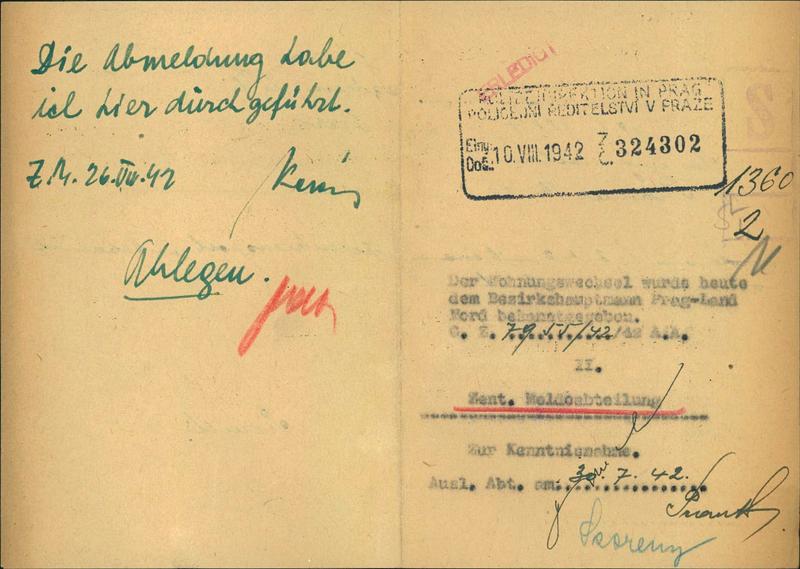 Die Abmeldung habe
ich hier durchgeführt.
Z.M. 26.VIII.42
Ablegen.
POLIZEIDIREKTION IN PRAG
POLICEJNÍ ŘEDITELSTVÍ V PRAZE
Eing.
Doš. 10.VIII.1942 Z. Č. 324302
1360
2
Der Wohnungswechsel wurde heute
dem Bezirkshauptmann Prag-Land
Nord bekanntgegeben.
G. Z. 7955/42/42 A.A.
II.
Zent. Meldeabteilung
Zur Kenntnisnahme.
Ausl. Abt. am 7. 42.